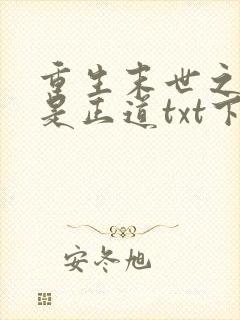 重生末世之
是正道txt下
安冬旭